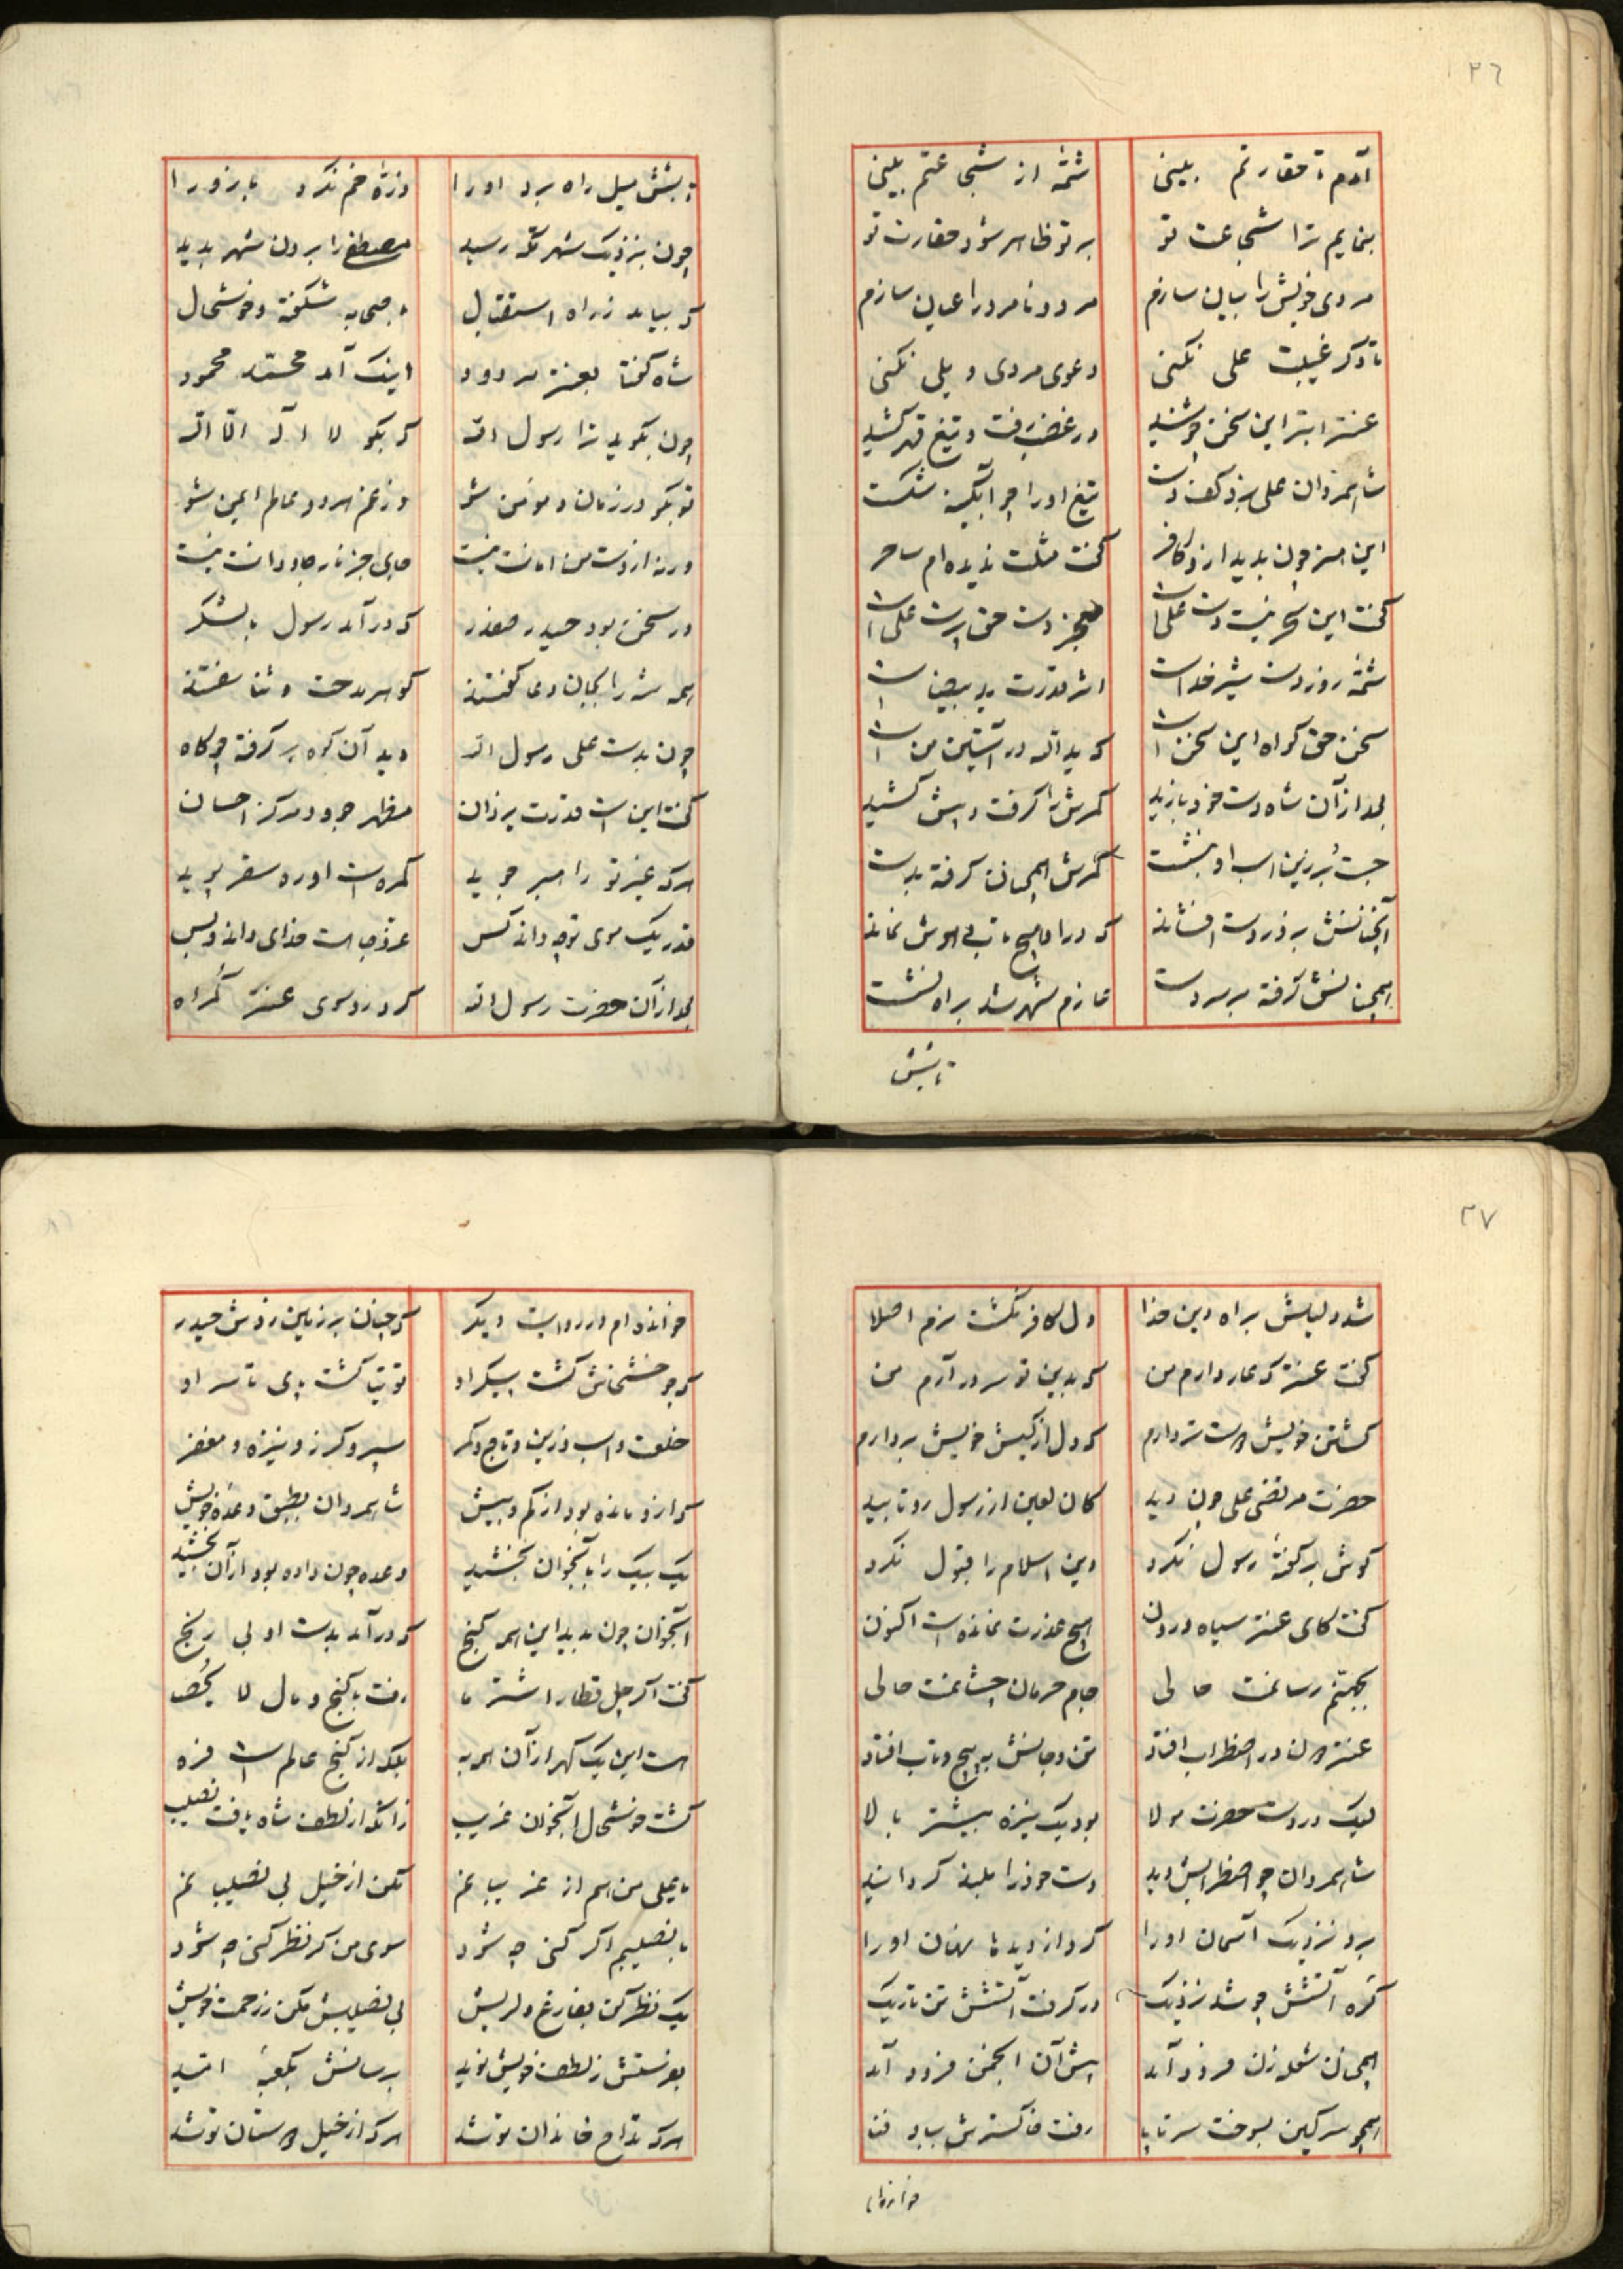 ٣٦
آمدم تا حقارتم بینی شمّهٔ از شجاعتم بینی
بنمایم ترا شجاعت تو بر تو ظاهر شود حقارت تو
مردی خویش را بیان سازم مرد و نامرد را عیان سازم
تا دکر غیبت علی نکنی دعوی مردی و یلی نکنی
عنتر ابتر این سخن چو شنید در غضب رفت و تیغ قهر کشید
شاهمردان علی بزد کف دست تیغ او را چو آبکینه شکست
این هنر چون بدید ازو کافر کفت مثلت ندیده‌ام ساحر
کفت این سحر نیست دست علی است معجز دست حق پرست علی است
شمّهٔ زور دست شیر خداست اثر قدرت ید بیضاست
سخن حق کواه این سخن است که ید الله در آستین من است
بعد از آن شاه دست خود یازید کمرش را کرفت و پیش کشید
جست بر زین اسب او بنشست کمرش همچنان کرفته بدست
آنچنانش بزور دست افشاند که درو هیچ تاب و هوش نماند
همچنانش کرفته بر سر دست عازم شهر شد براه نشست
تا بشش
تا بشش میل راه برد او را وز ره خم نکرد بازو را
چون بنزدیک شهر مکه رسید مصطفی را برون شهر بدید
که بیامد ز راه استقبال با صحابه شکفته و خوشحال
شاه کفتا بعنتر مردود اینک آمد محمّد محمود
چون بکوید ترا رسول الله که بکو لا اله الّا الله
تو بکو در زمان و مومن شو وز غم هر دو عالم ایمن شو
ورنه از دست من امانت نیست جای جز نار جاودانت نیست
در سخن بود حیدر صفدر که در آمد رسول با لشکر
همه شه را بجان دعا کفتند کوهر مدحت و ثنا سفتند
چون بدست علی رسول الله دید آن کوه بر کرفته چو کاه
کفت این است قدرت یزدان مظهر جود و مرکز احسان
هر که غیر تو را امیر جوید کمره است او ره سقر پوید
قدر یک موی تو چه داند کس عزّ و جاهت خدای داند و بس
بعد از آن حضرت رسول الله کرد رو سوی عنتر کمراه
٣٧
شد دلیلش براه دین خدا دل کافر نکشت نرم اصلا
کفت عنتر که عار دارم من که بدین تو سر در آرم من
کشتن خویش دوست‌تر دارم که دل از کیش خویش بردارم
حضرت مرتضی علی چون دید کان لعین از رسول رو تابید
کوش بر کفتهٔ رسول نکرد دین اسلام را قبول نکرد
کفت کای عنتر سیاه درون هیچ عذرت نمانده است اکنون
بجهنّم رسانمت حالی جام حرمان چشانمت حالی
عنتر دون در اضطراب افتاد تن و جانش به پیچ و تاب افتاد
لیک در دست حضرت مولا بود یک نیزه بیشتر بالا
شاهمردان چو اضطرابش دید دست خود را بلند کردانید
برد نزدیک آسمان او را کرد از دیده‌ها نهان او را
کره آتشش چو شد نزدیک در کرفت آتشش تن تاریک
همچنان شعله زن فرود آمد پیش آن انجمن فرود آمد
همچو سرکین بسوخت سر تا پا رفت خاکسترش بباد فنا
خوانده‌ام
خوانده‌ام در روایت دیکر که چنان بر زمین زدش حیدر
که چو خشخاش کشت پیکر او توتیا کشت پای تا سر او
خلعت و اسب و زین و تاج و کمر سپر و کرز و نیزه و مغفر
که ازو مانده بود از کم و بیش شاهمردان بطبق وعده خویش
یک بیک را بآنجوان بخشید وعده چون داده بود از آن بخشید
آنجوان چون بدید این همه کنج که در آمد بدست او بی رنج
کفت اکر چل قطار اشتر ما رفت با کنج و مال لا یحصا
هست این یک کهر از آن همه به بلکه از کنج عالم است فره
کشت خوشحال آنجوان غریب زانکه از لطف شاه یافت نصیب
یا علی من هم از غریبانم مکن از خیل بی نصیبانم
با نصیبم اکر کنی چه شود سوی من کر نظر کنی چه شود
یک نظر کن بفارغ دلریش بی نصیبش مکن ز رحمت خویش
بفرستش ز لطف خویش نوید برسانش بکعبهٔ امّید
هر که مدّاح خاندان تو شد هر که از خیل دوستان تو شد